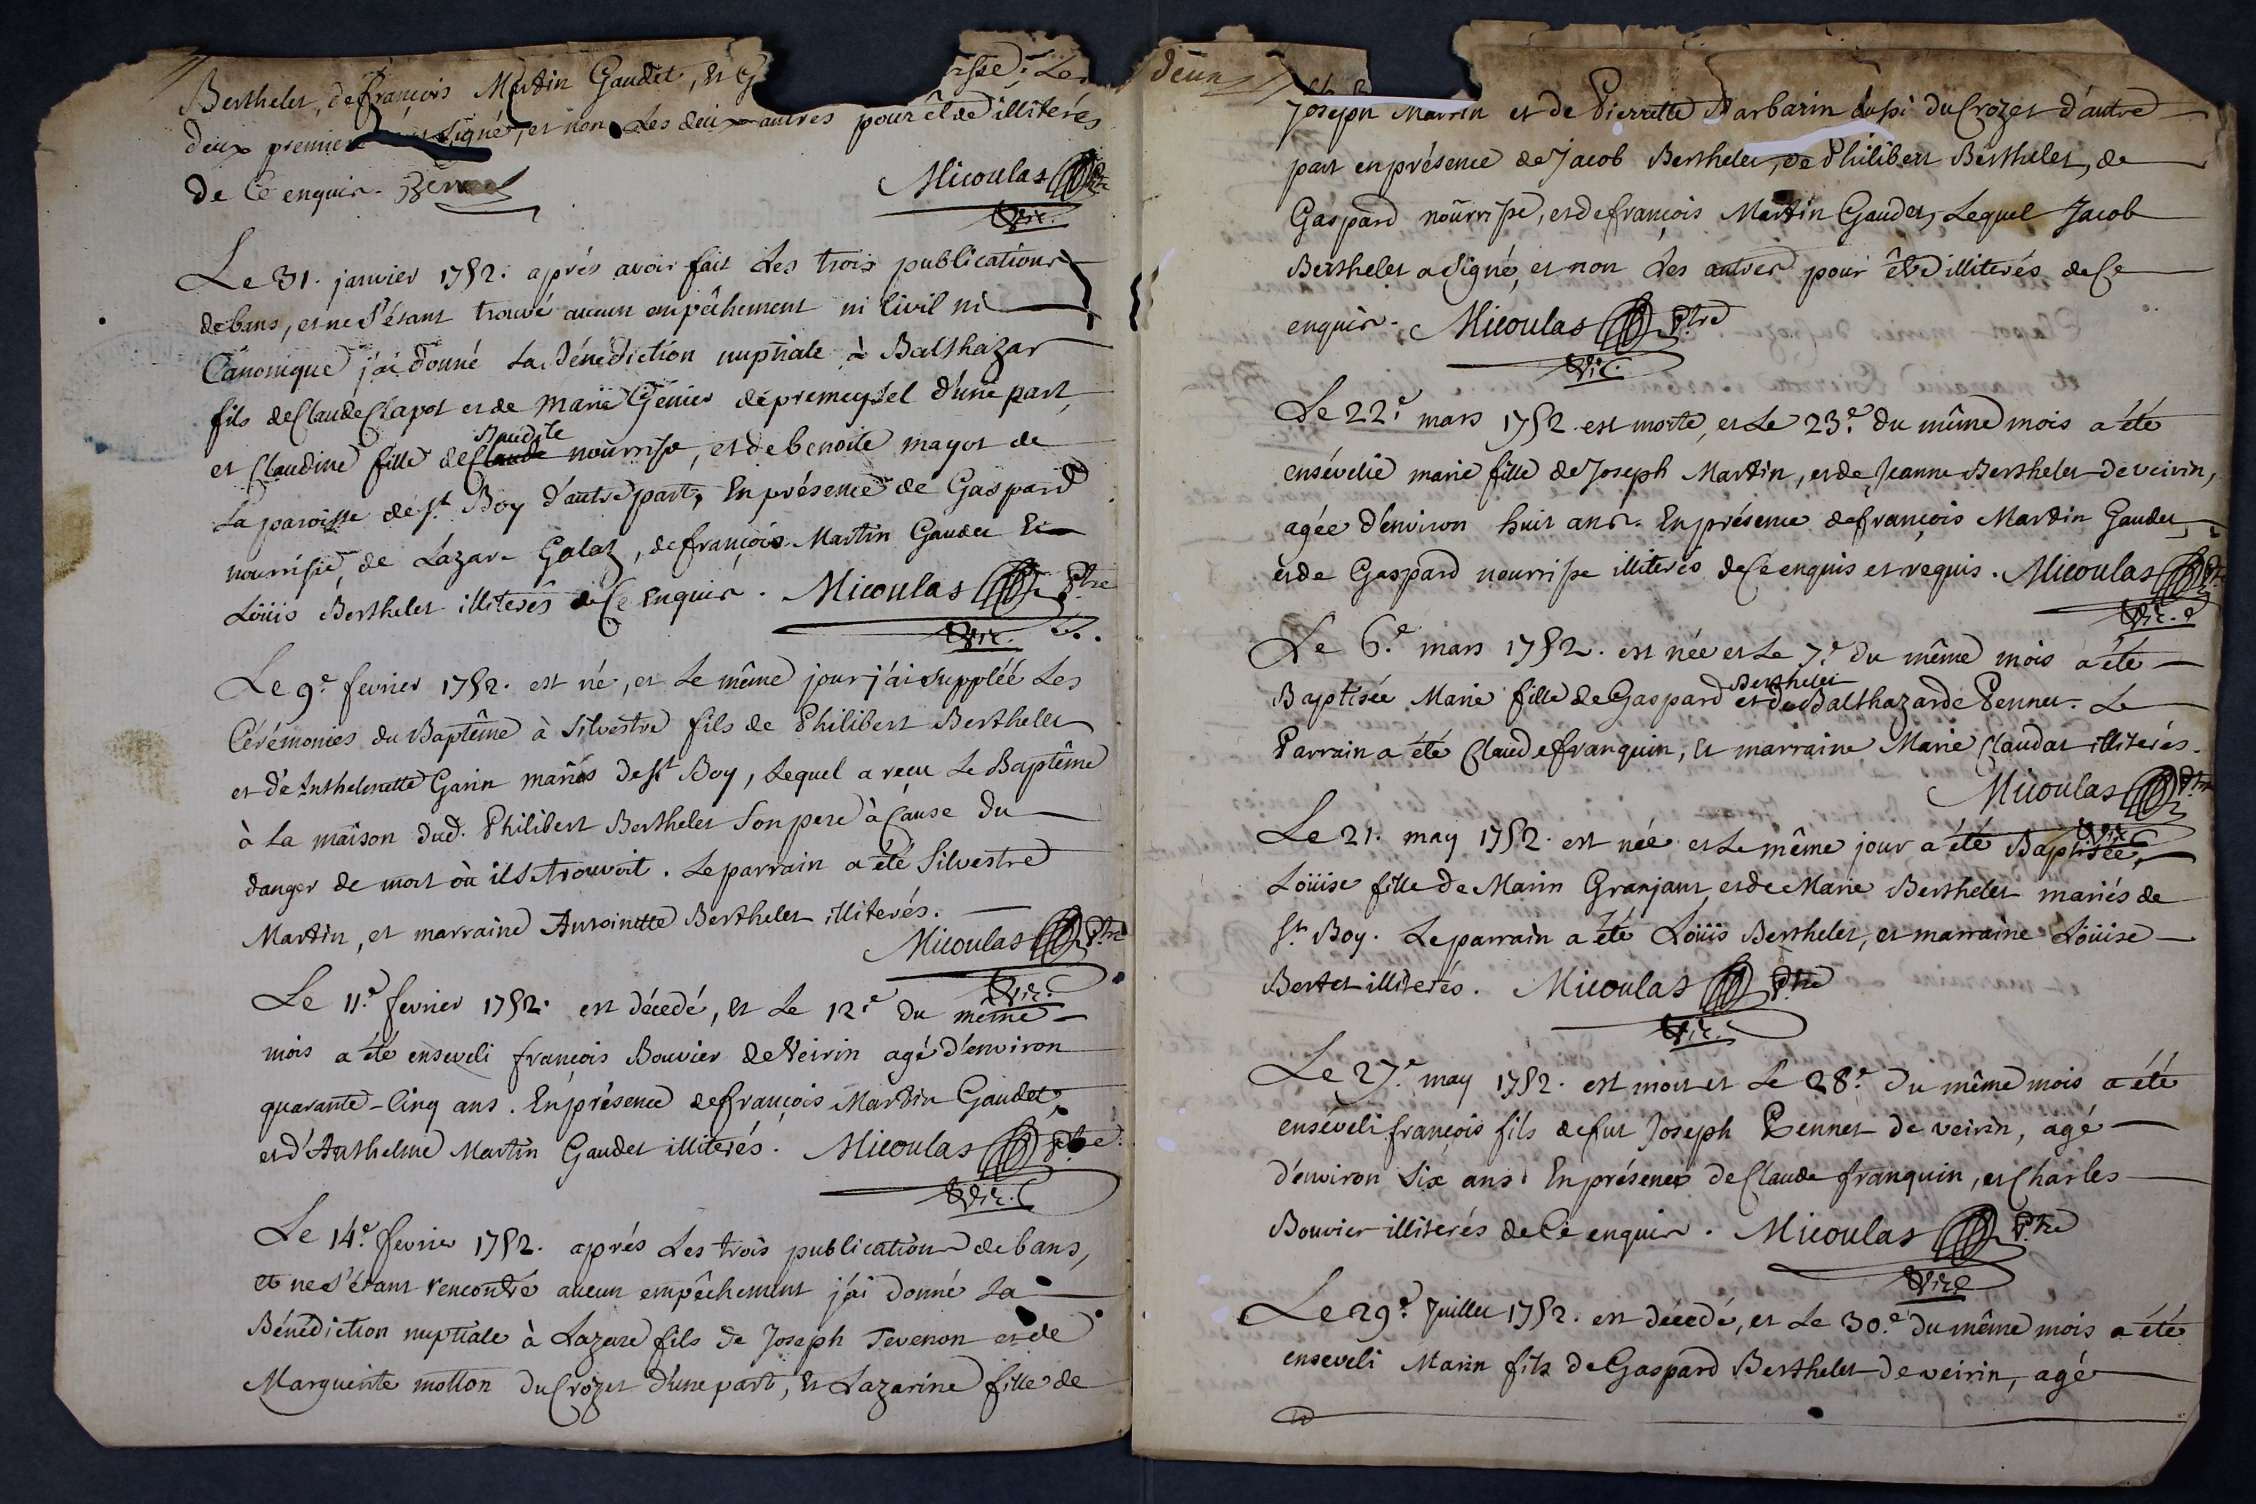 Berthelet, de françois Martin Gaudet, et G risse. Les
deux premiers signé, et non les deux autres pour être illiterés
de ce enquis.
Micoulas Ptre
Vic.
Le 31. janvier 1752. aprés avoir fait les trois publications
de bans, et ne s'étant trouvé aucun empêchement ni civil ni
Canonique j'ai donné la Bénediction nuptiale à Balthazar
fils de Claude Clapot et de Marie Genier de premeysel d'une part,
Baudite
et Claudine fille de Claude nourrisse, et de benoite mayot de
la paroisse de St Boy d'autre part, En présence de Gaspard
nourrisse, de Lazare Galaz, de françois Martin Gaudet Et
Loüis Berthelet illiterés de ce Enquis. Micoulas Ptre
Vic.
Le 9.e fevrier 1752. est né, et le même jour j'ai suppléé les
Cérémonies du Baptême à Silvestre fils de Philibert Berthelet
et d'Anthelmette Garin mariés de St Boy, lequel a reçu le Baptême
à la maison dud. Philibert Berthelet son pere à cause du
danger de mort où il se trouvoit. Le parrain a été Silvestre
Martin, et marraine Antoinette Berthelet illiterés.
Micoulas Ptre
Vic.
Le 11.e fevrier 1752. est décedé, et le 12.e du même
mois a été enseveli françois Bouvier de Veirin agé d'environ
quarante-cinq ans. En présence de françois Martin Gaudet,
et d'Anthelme Martin Gaudet illiterés. Micoulas Ptre
Vic.
Le 14.e fevrier 1752. aprés les trois publications de bans,
et ne s'étant rencontré aucun empêchement j'ai donné la
Bénédiction nuptiale à Lazare fils de Joseph Tevenon et de
Marguerite mollon du Crozet d'une part, et Lazarine fille de
d'eun
Joseph Martin et de Pierrette Barbarin aussi du Crozet d'autre
part en présence de Jacob Berthelet, de Philibert Berthelet, de
Gaspard nourrisse, et de françois Martin Gaudet, Lequel Jacob
Berthelet a signé, et non les autres pour être illiterés de ce
enquis. Micoulas Ptre
Vic.
Le 22.e mars 1752 est morte, et Le 23.e du même mois a été
ensévelie marie fille de Joseph Martin, et de Jeanne Berthelet de veirin,
agée d'environ huit ans. En présence de françois Martin Gaudet,
et de Gaspard nourrisse illiterés de ce enquis et requis. Micoulas Ptre
Vic.
Le 6.e mars 1752. est née et Le 7.e du même mois a été
Berthelet
Baptisée Marie fille de Gaspard et de Balthazarde Pennet. Le
Parrain a été Claude franquin, et marraine Marie Claudat illiterés.
Micoulas Ptre
Vic
Le 21. may 1752. est née et le même jour a été Baptisée,
Loüise fille de Marin Granjant, et de Marie Berthelet mariés de
St Boy. Le parrain a été Loüis Berthelet, et marraine Loüise
Bertet illiterés. Micoulas Ptre
Vic.
Le 27.e may 1752. est mort et Le 28.e du même mois a été
enséveli françois fils de fut Joseph Pennet de veirin, agé
d'environ six ans. En présence de Claude franquin, et Charles
Bouvier illiterés de ce enquis. Micoulas Ptre
Vic
Le 29.e Juillet 1752. est décedé, et Le 30.e du même mois a été
enseveli Marin fils de Gaspard Berthelet de veirin, agé